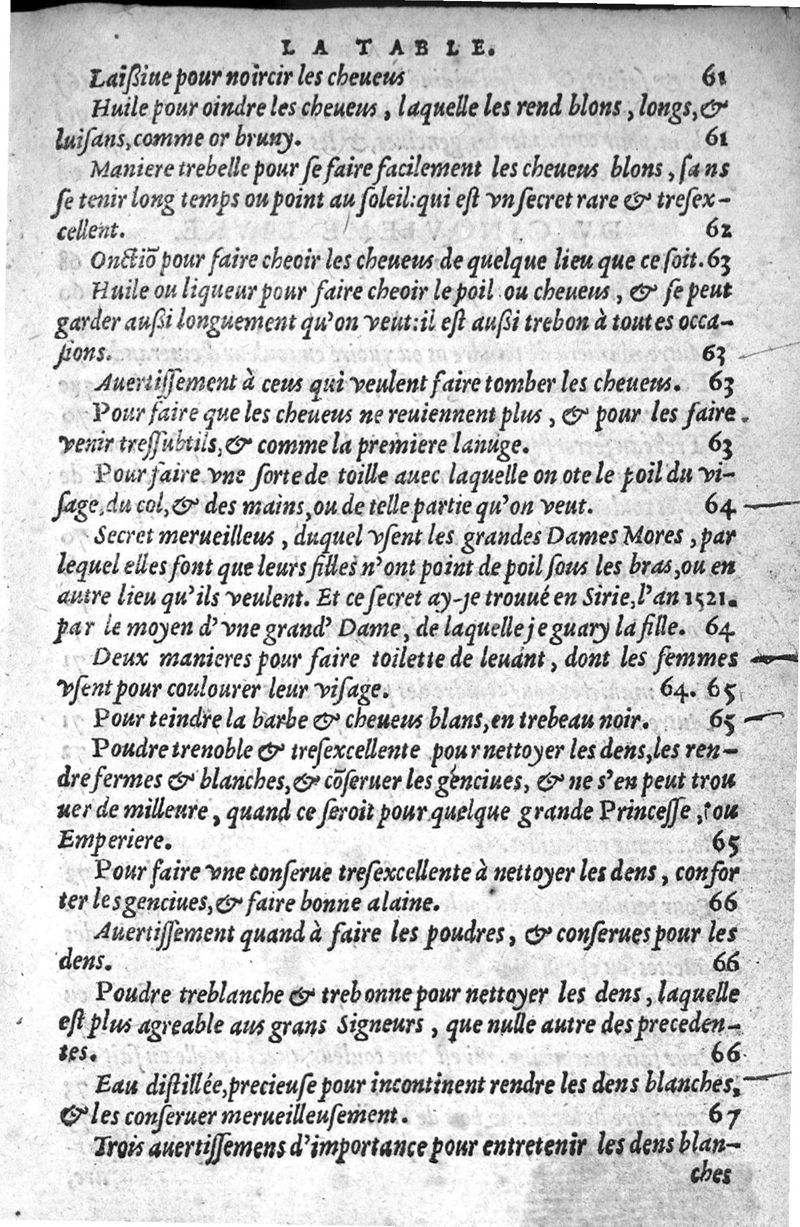 LA TABLE.
Laißiue pour noircir les cheueus 61
Huile pour oindre les cheueus, laquelle les rend blons, longs, &
luiſans, comme or bruny. 61
Maniere trebelle pour ſe faire facilement les cheueus blons, ſans
ſe tenir long temps ou point au ſoleil: qui eſt vn ſecret rare & treſex-
cellent. 62
Onctiõ pour faire cheoir les cheueus de quelque lieu que ce ſoit. 63
Huile ou liqueur pour faire cheoir le poil ou cheueus, & ſe peut
garder außi longuement qu'on veut: il eſt außi trebon à toutes occa-
ſions. 63
Auertiſſement à ceus qui veulent faire tomber les cheueus. 63
Pour faire que les cheueus ne reuiennent plus, & pour les faire
venir treſſubtils, & comme la premiere lanuge. 63
Pour faire vne ſorte de toille auec laquelle on ote le poil du vi-
ſage, du col, & des mains, ou de telle partie qu'on veut. 64
Secret merueilleus, duquel vſent les grandes Dames Mores, par
lequel elles font que leurs filles n'ont point de poil ſous les bras, ou en
autre lieu qu'ils veulent. Et ce ſecret ay-je trouué en Sirie, l'an 1521.
par le moyen d'vne grand' Dame, de laquelle je guary la fille. 64
Deux manieres pour faire toilette de leuant, dont les femmes
vſent pour coulourer leur viſage. 64. 65
Pour teindre la barbe & cheueus blans, en trebeau noir. 65
Poudre trenoble & treſexcellente pour nettoyer les dens, les ren-
dre fermes & blanches, & cõſeruer les genciues, & ne s'en peut trou
uer de milleure, quand ce ſeroit pour quelque grande Princeſſe, ou
Emperiere. 65
Pour faire vne conſerue treſexcellente à nettoyer les dens, confor
ter les genciues, & faire bonne alaine. 66
Auertiſſement quand à faire les poudres, & conſerues pour les
dens. 66
Poudre treblanche & trebonne pour nettoyer les dens, laquelle
eſt plus agreable aus grans Signeurs, que nulle autre des preceden-
tes. 66
Eau diſtillée, precieuſe pour incontinent rendre les dens blanches,
& les conſeruer merueilleuſement. 67
Trois auertiſſemens d'importance pour entretenir les dens blan-
ches